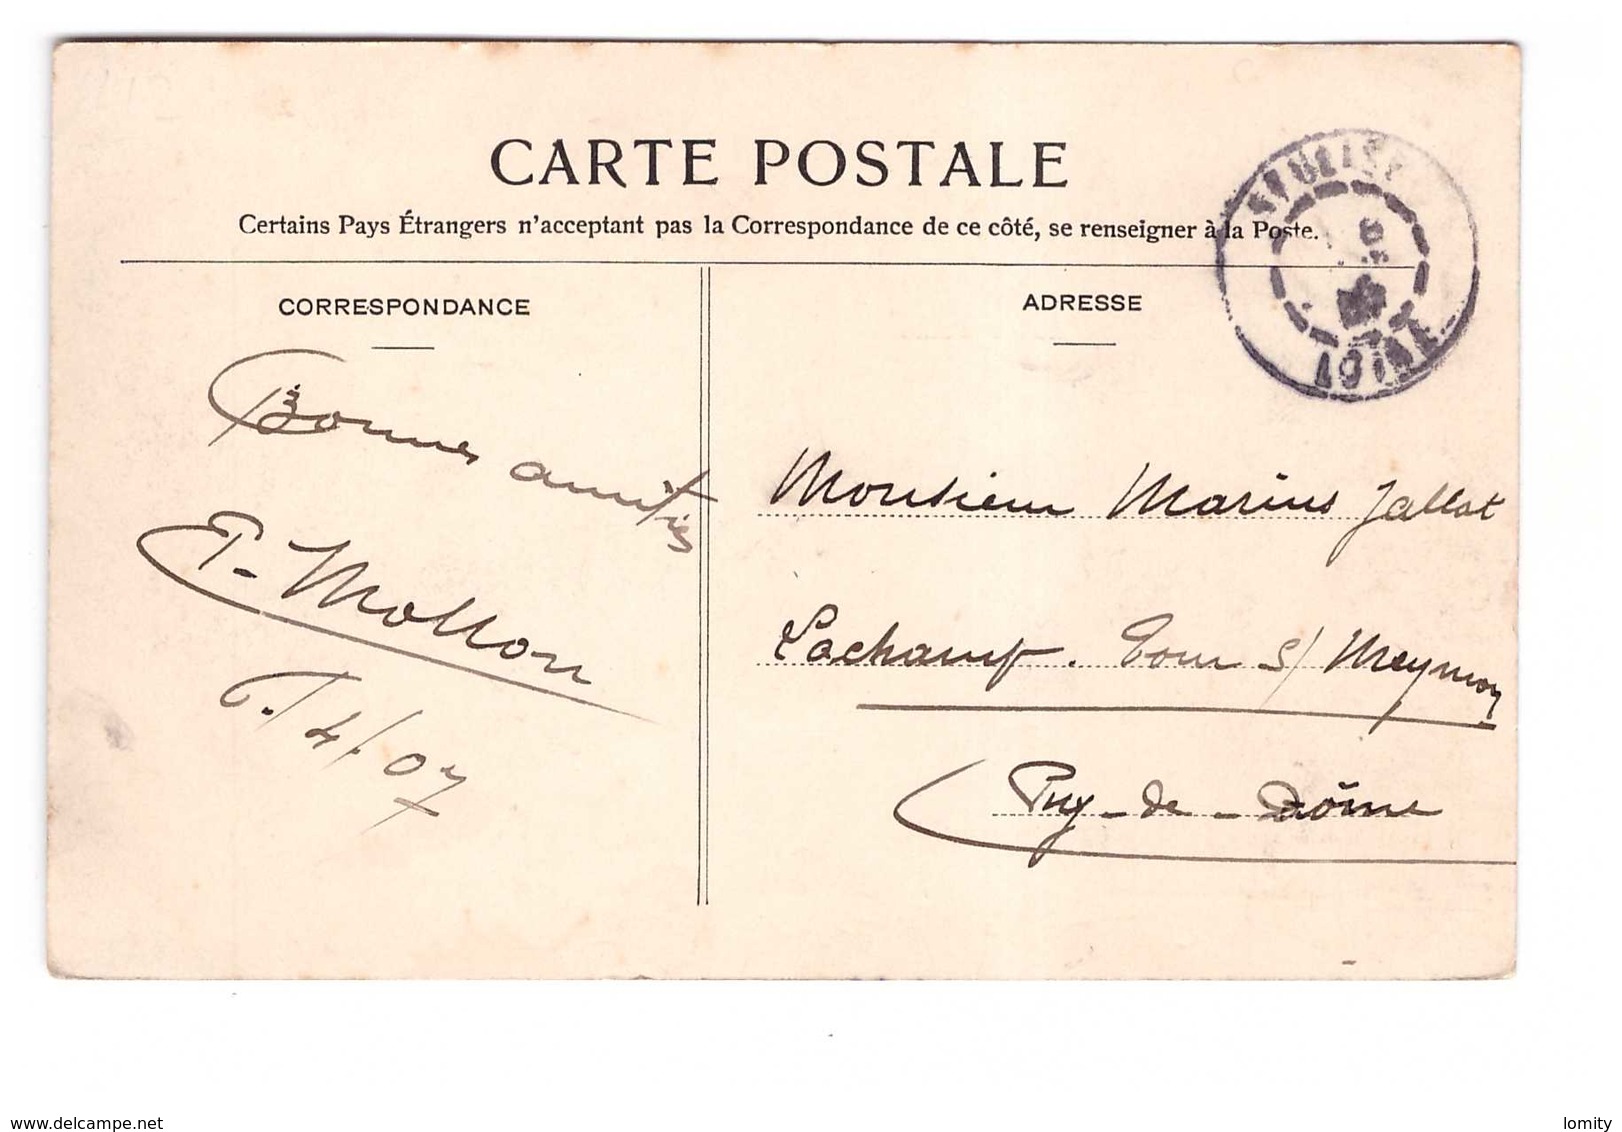 CARTE POSTALE
Certains Pays Étrangers n'acceptant pas la Correspondance de ce côté, se renseigner à la Poste.
CORRESPONDANCE
Bonnes amitiés
P. Mollon
4/07
ADRESSE
Monsieur Marius Jallat
Lachamp. Tour s/ Meymon
Puy-de-Dôme
LOIRE
www.delcampe.net
lomity